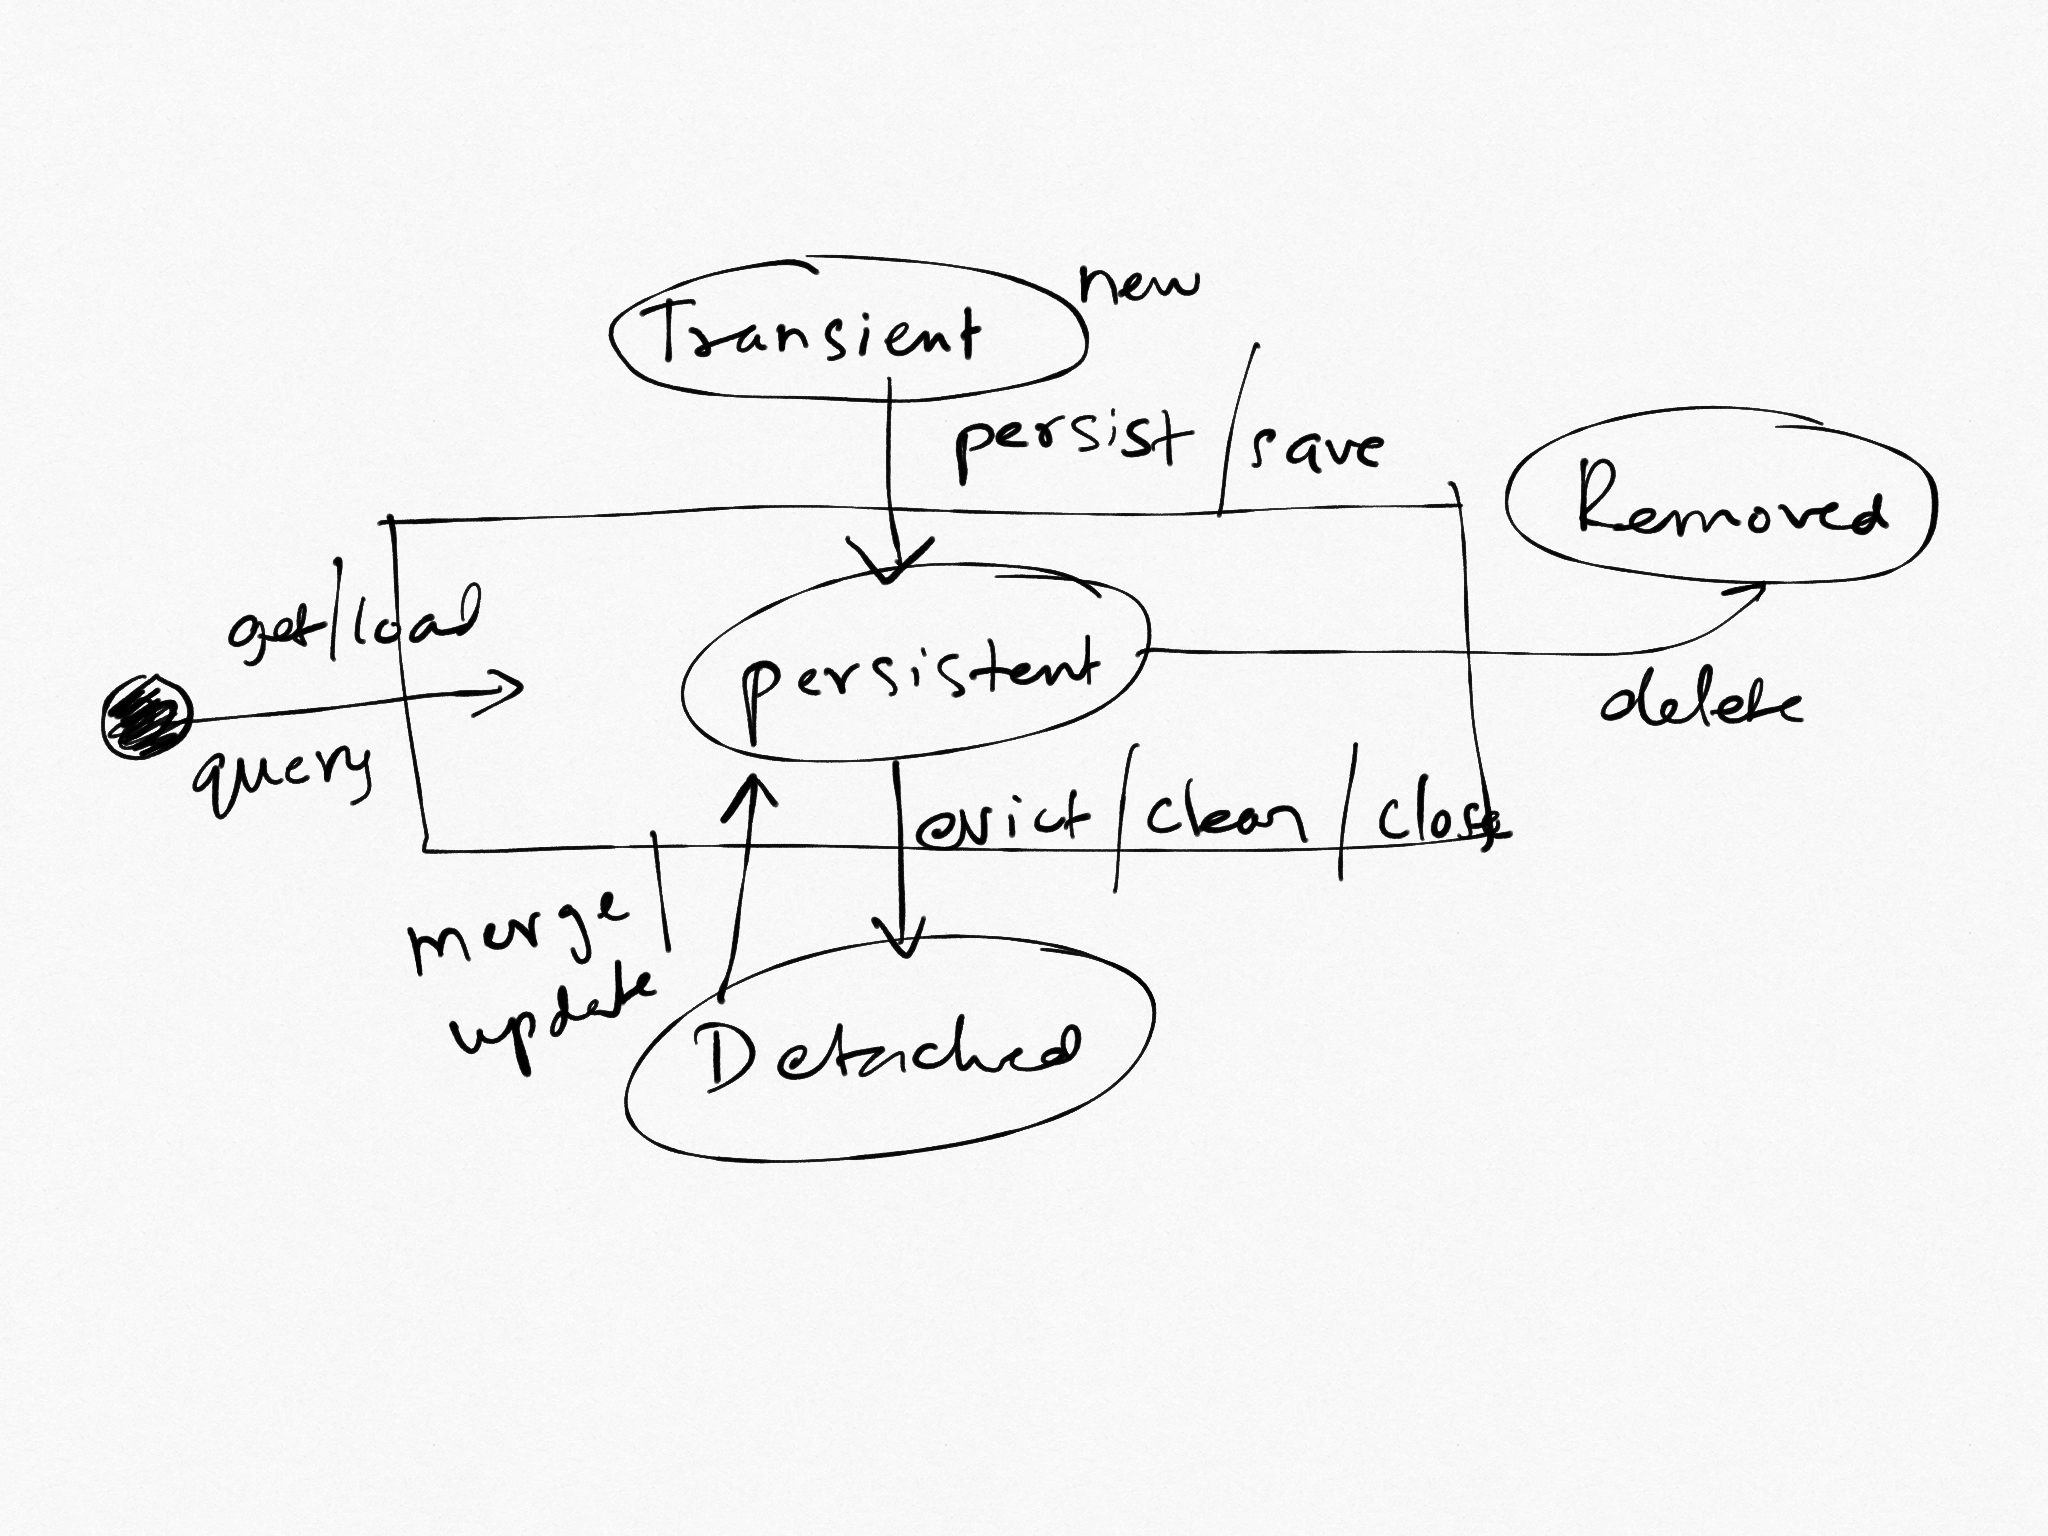 new
Transient
persist/save
Removed
get/load
persistent
delete
query
evict/clean/close
merge/
update
Detached